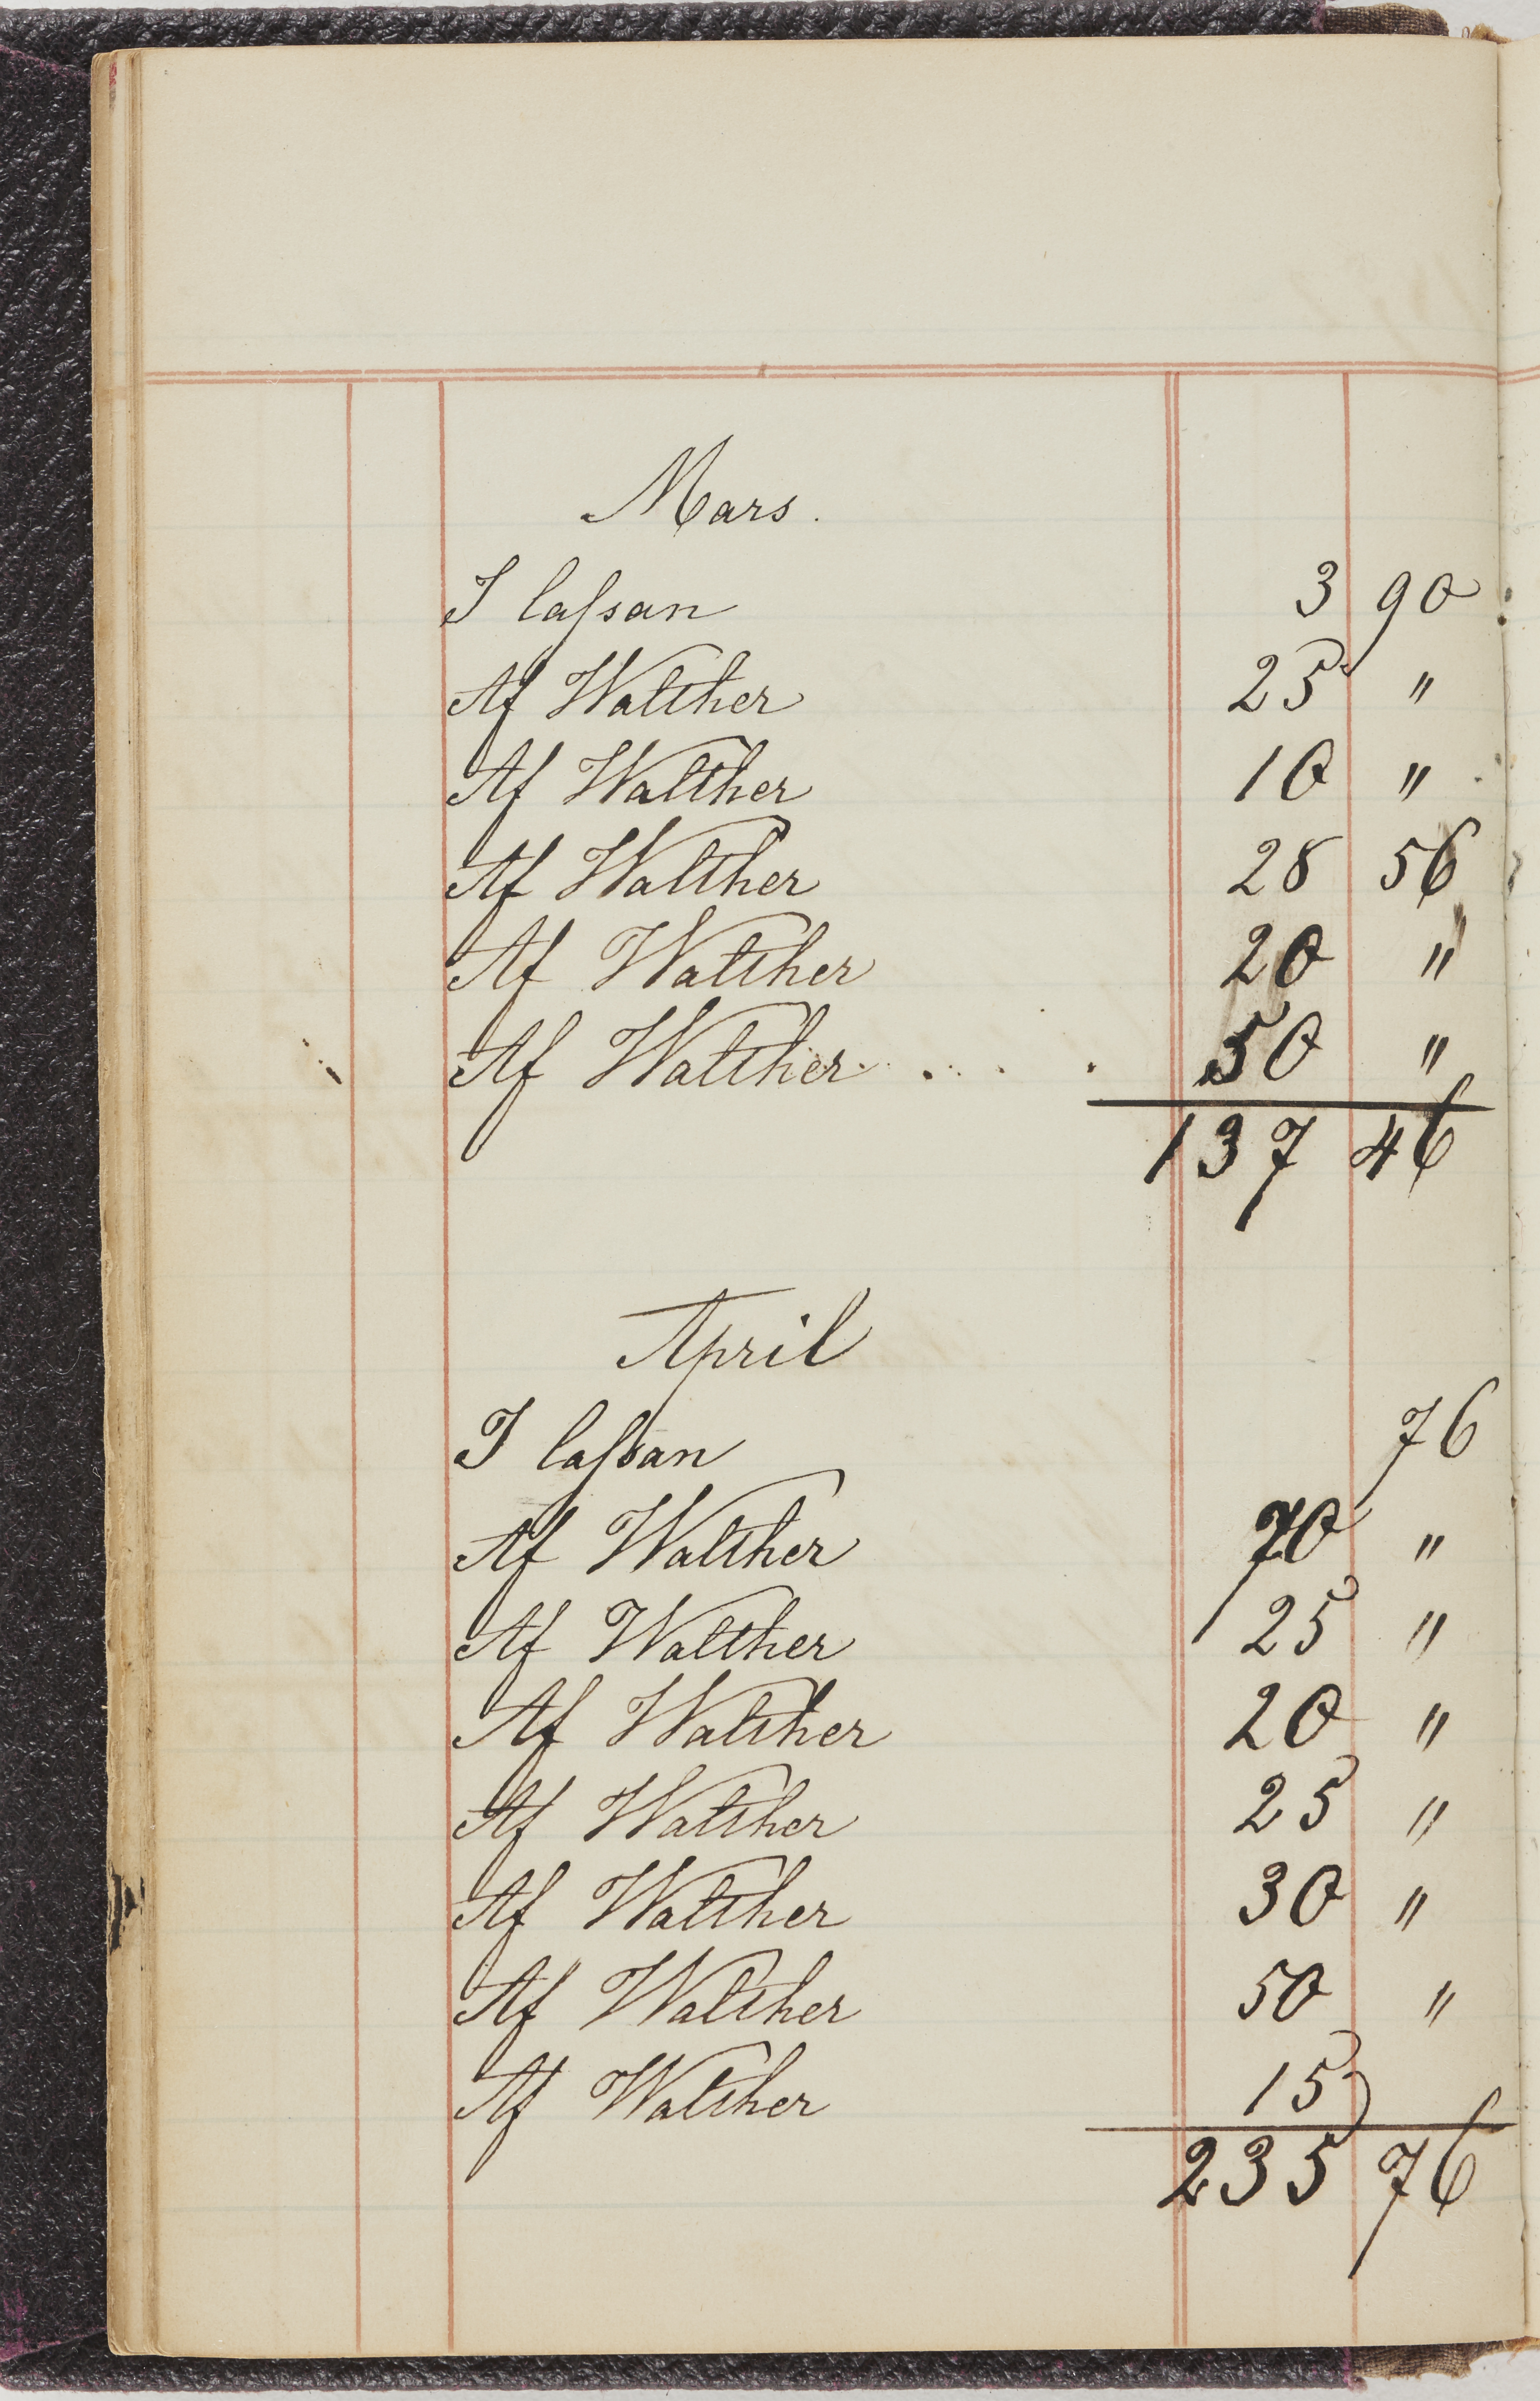 Mars.
I caſsan 3 90
Af Walther 25 "
Af Walther 10 "
Af Walther 28 56
Af Walther 20 "
Af Walther . . . . 50 "
137 46
April
I caſsan 76
Af Walther 70 "
Af Walther 25 "
Af Walther 20 "
Af Walther 25 "
Af Walther 30 "
Af Walther 50 "
Af Walther 15
235 76